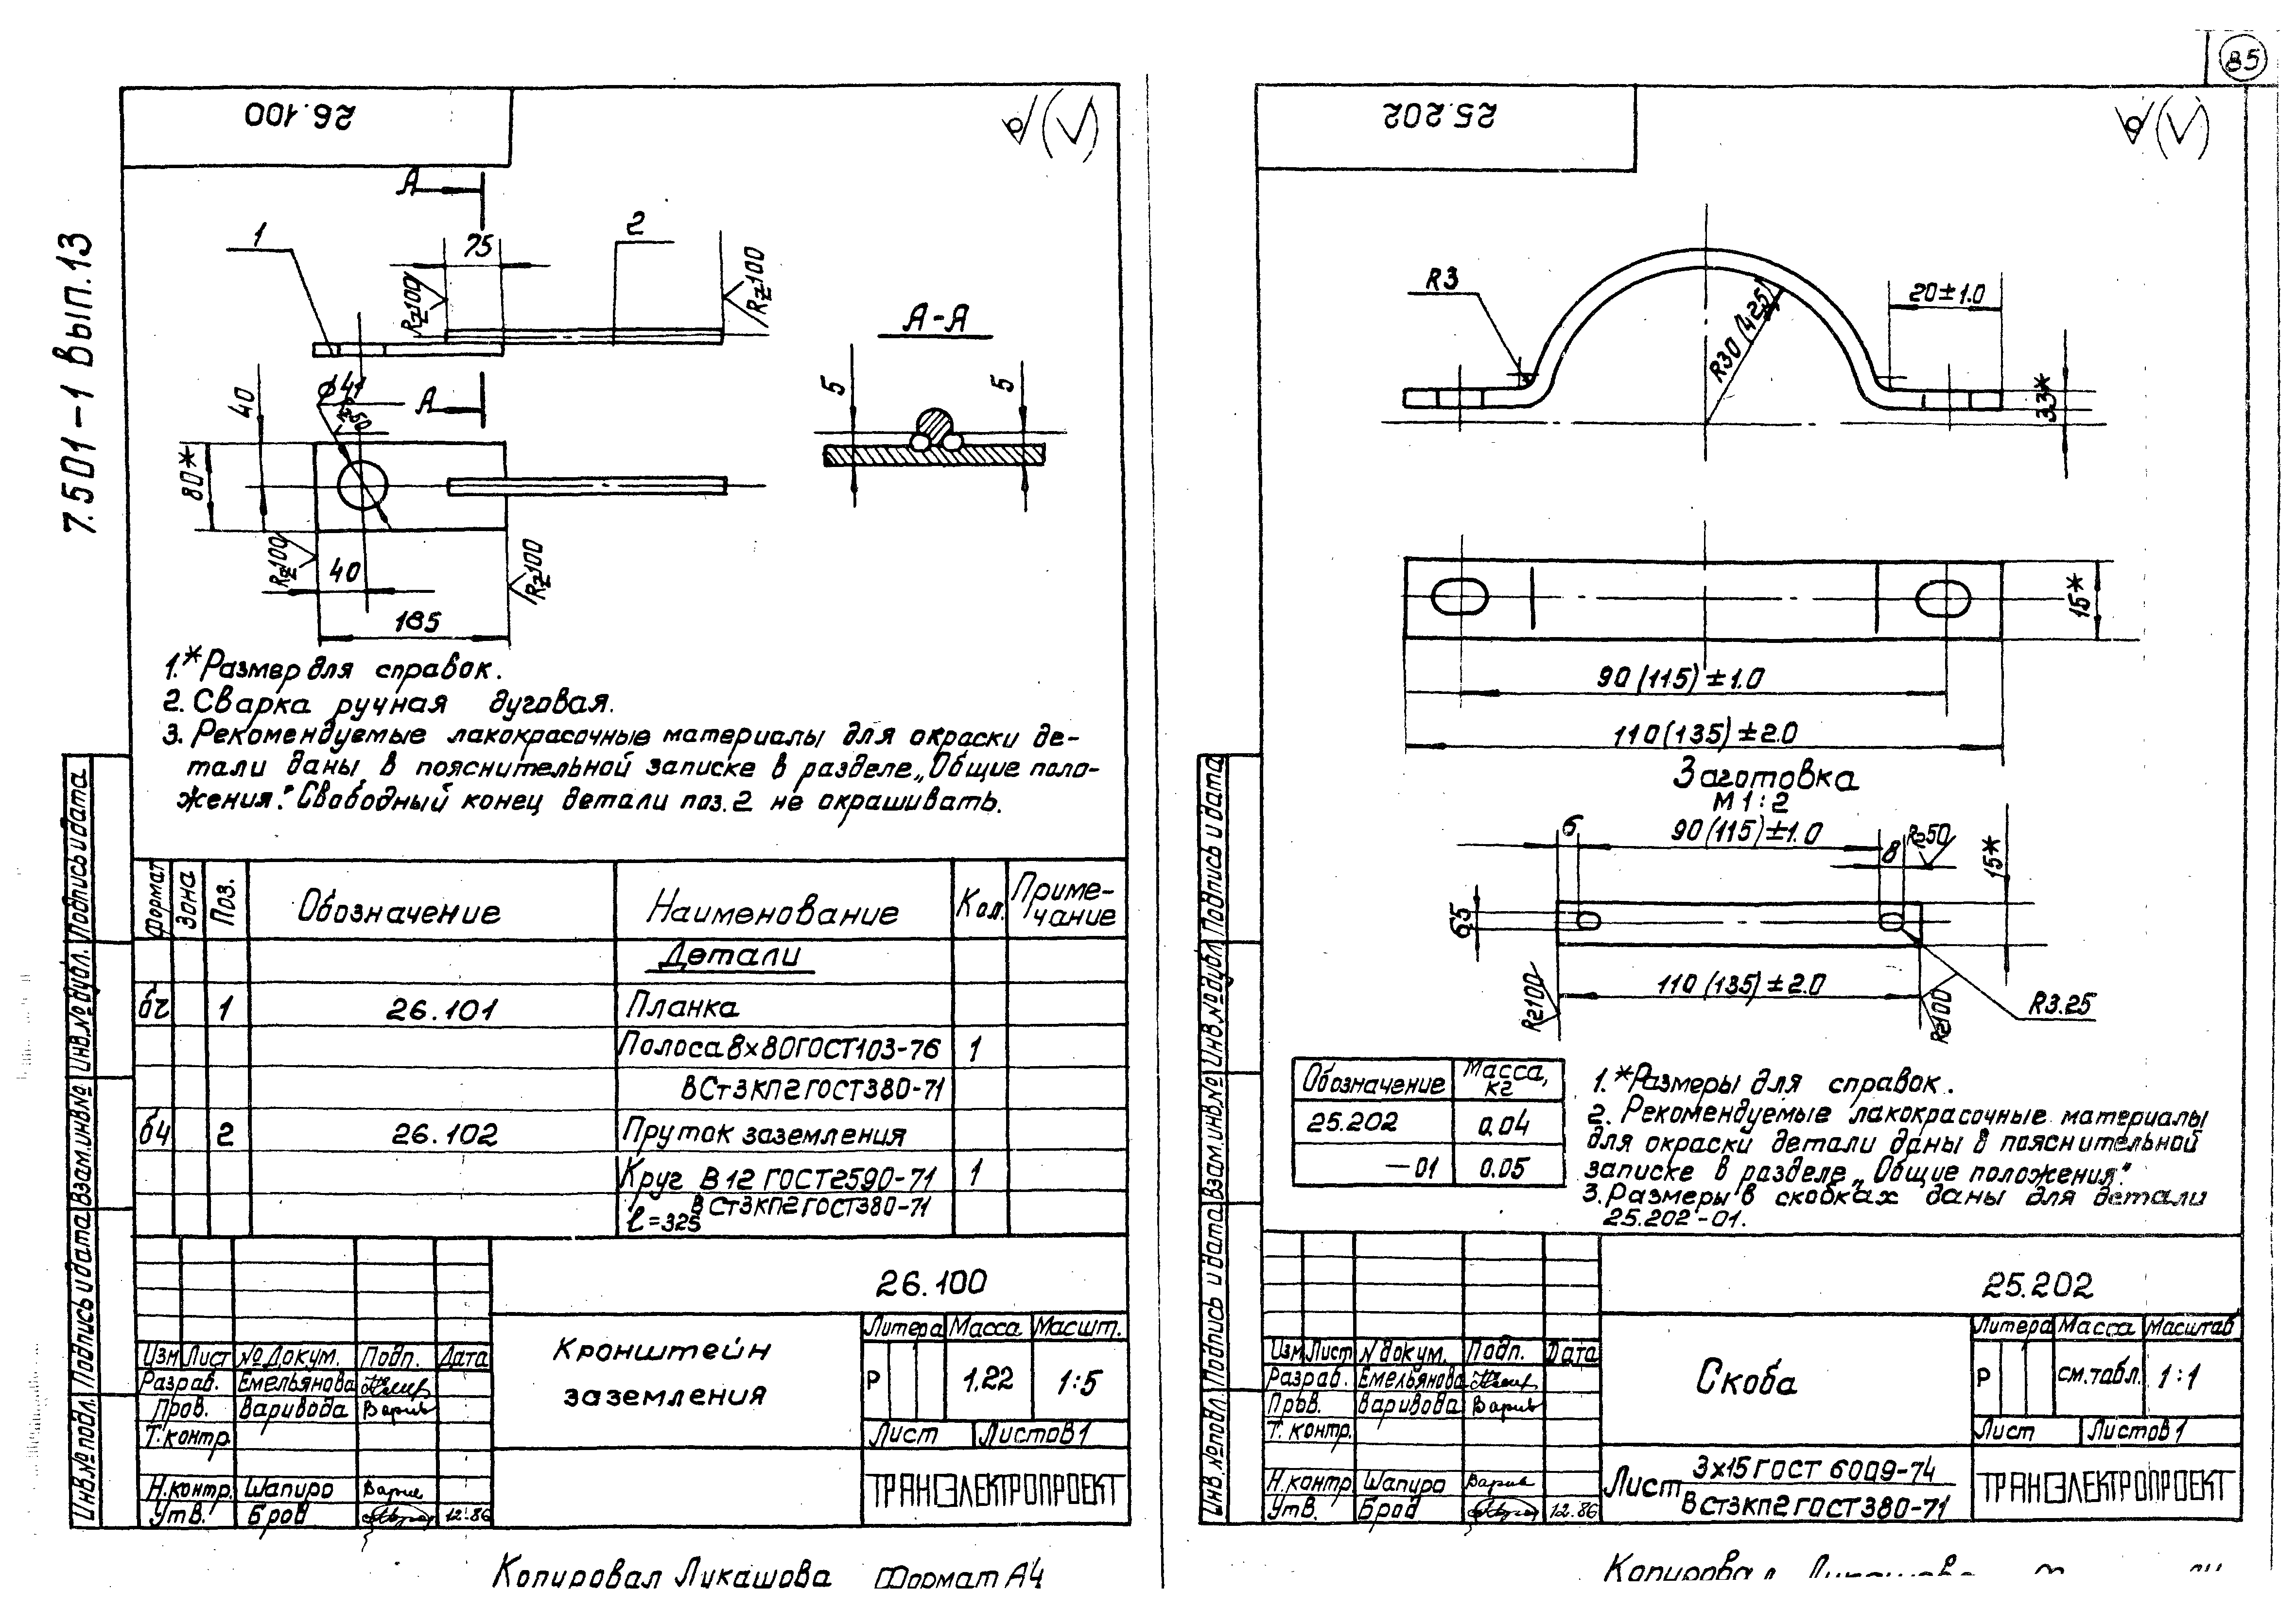 85
7.501-1 Вып.13
26.100
А
75
2
1
Rz100
Rz100
А-А
5
5
ϕ41
Rz50
А
40
80*
Rz100
40
Rz100
185
1.*Размер для справок.
2. Сварка ручная дуговая.
3. Рекомендуемые лакокрасочные материалы для окраски де-
тали даны в пояснительной записке в разделе „Общие поло-
жения." Свободный конец детали поз.2 не окрашивать.
Формат
Зона
Поз.
Обозначение
Наименование
Кол.
Приме-
чание
Детали
бч 1 26.101 Планка
Полоса 8х80 ГОСТ103-76 1
ВСт3кп2 ГОСТ380-71
бч 2 26.102 Пруток заземления
Круг В12 ГОСТ2590-71 1
ВСт3кп2 ГОСТ380-71
ℓ=325
26.100
Кронштейн
заземления
Литера Масса Масшт.
Р 1,22 1:5
Лист Листов 1
ТРАНСЭЛЕКТРОПРОЕКТ
Изм Лист № Докум. Подп. Дата
Разраб. Емельянова
Пров. Варивода Варив
Т.контр.
Н.контр. Шапиро
Утв. Брод 12.86
Подпись и дата
Инв.№ дубл.
Взам.инв.№
Подпись и дата
Инв.№ подл.
Копировал Лукашова Формат А4
25.202
R3
R30 (42,5)
20±1.0
33*
15*
90 (115)±1.0
110 (135)±2.0
Заготовка
М1:2
6
90 (115)±1.0
8
Rz50
15*
6,5
Rz100
110 (135)±2.0
Rz100
R3.25
Обозначение Масса, кг
25.202 0.04
-01 0.05
1.*Размеры для справок.
2. Рекомендуемые лакокрасочные материалы
для окраски детали даны в пояснительной
записке в разделе „Общие положения".
3. Размеры в скобках даны для детали
25.202-01.
25.202
Скоба
Литера Масса Масштаб
Р см.табл. 1:1
Лист Листов 1
Лист 3х15 ГОСТ 6009-74
ВСт3кп2 ГОСТ380-71
ТРАНСЭЛЕКТРОПРОЕКТ
Изм Лист N докум. Подп. Дата
Разраб. Емельянова
Пров. Варивода Варив
Т. контр.
Н.контр Шапиро
Утв. Брод 12.86
Подпись и дата
Инв.№ дубл
Взам.инв.№
Подпись и дата
Инв.№ подл.
Копировал Лукашова